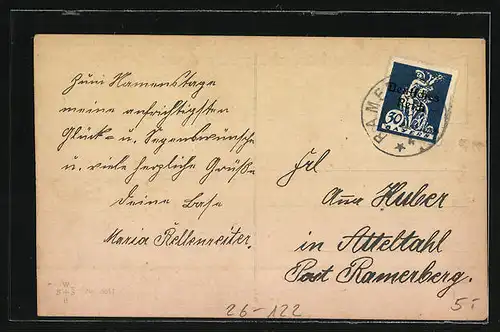 Zum Namenstage
meine aufrichtigsten
Glück- u. Segenswünsche
u. viele herzliche Grüße
Deine Base
Maria Kellenreiter.
Deutsches
Reich
50
BAYERN
RAME
Frl
Anna Huber
in Atteltahl
Post Ramerberg.
26-122
5.-